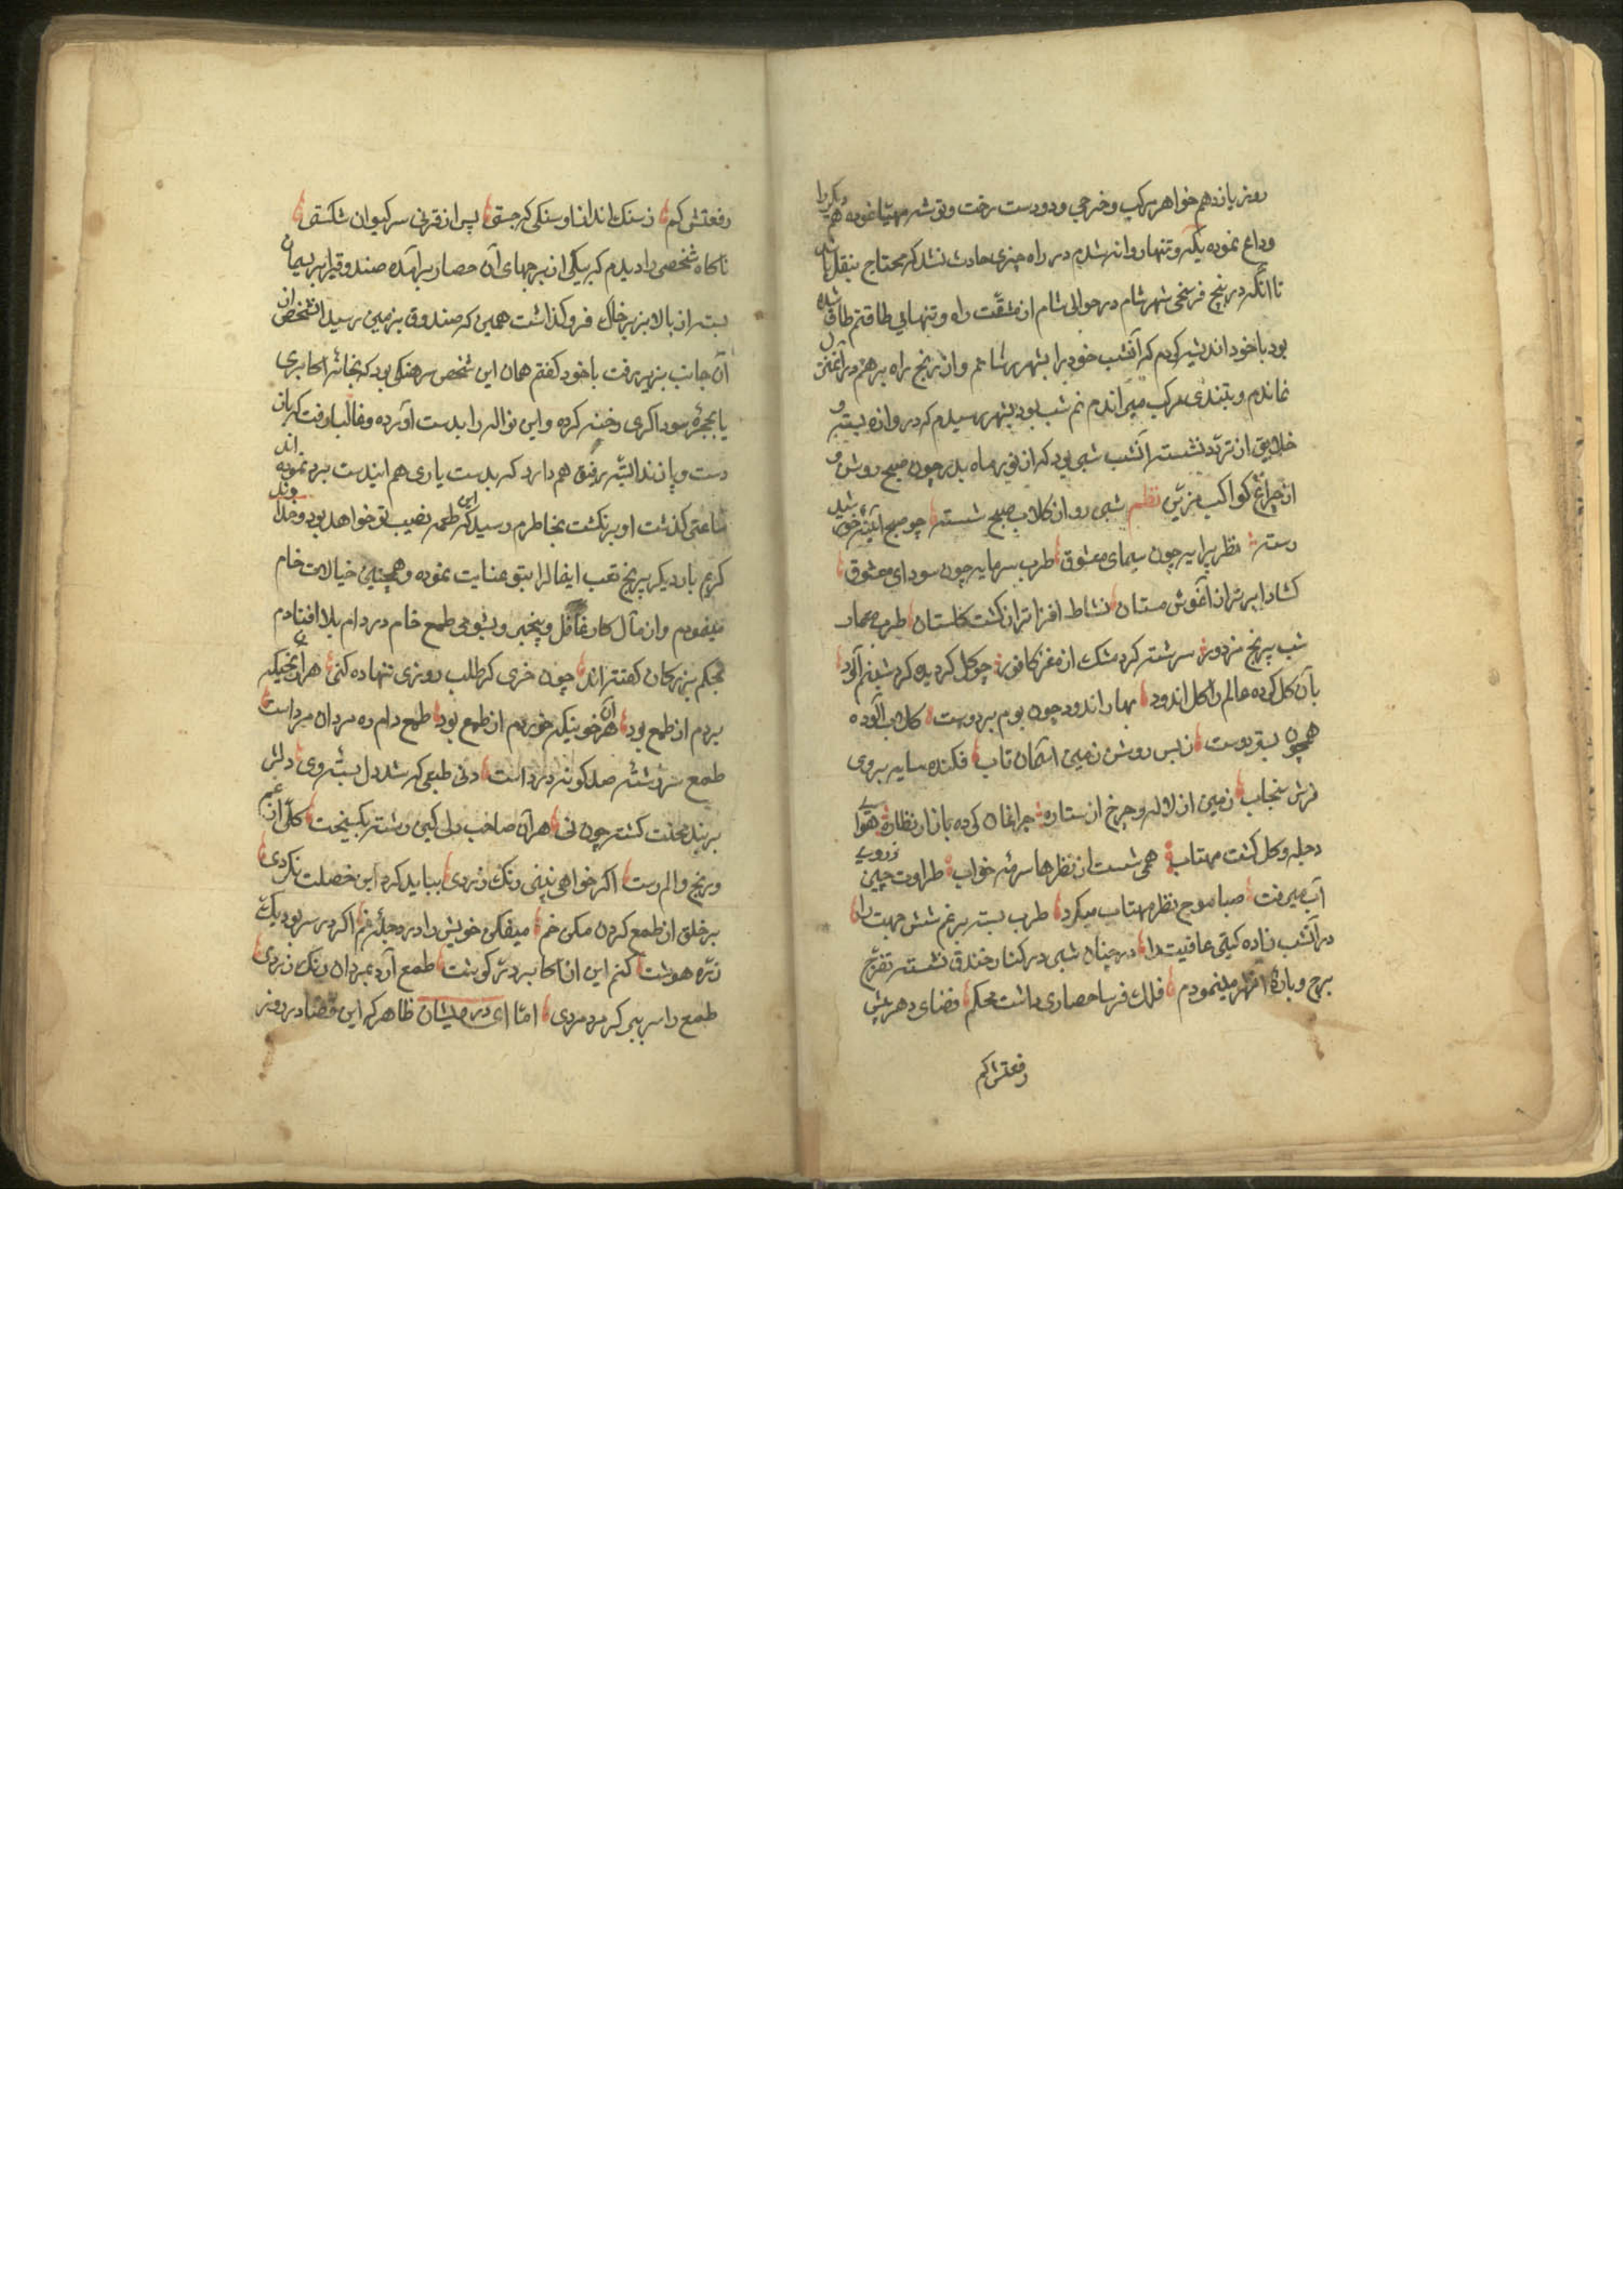 روز یازدهم خواهر مرکب و خرجی و دو دست رخت و توشه مهیا نموده هم دیکررا
وداع نموده یکه و تنها روانه شدم در راه چیزی حادث نشد که محتاج بنقل باشد
تا آنکه در پنج فرسخی شهر شام در حوالی شام از مشقت راه و تنهایی طاقتم طاق شده
بود با خود اندیشه کردم که آنشب خود را بشهر رسانم و از رنج راه برهم درآنمن
نماندم و بتندی مرکب میراندم نم شب بود بشهر رسیدم که دروازه بسته و
خلایق از تردد نشسته آنشب شبی بود که از نور ماه بدر چون صبح روشن و
از چراغ کواکب مزین نظم شبی رو از کلاب صبح شسته چو صبح آئینه خورشید
دسته نظر پیرایه چون سیمای معشوق طرب سرمایه چون سودای معشوق
کشاد ابر تر از آغوش مستان نشاط افزا تر از کشت کلستان طرب معمار
شب بیرنج مزدور سرشته کرد مشک از مغز کافور چو کل کردیده کرد شبنم آلود
بآن کل کرده عالم را کل اندود بهار اندود چون بوم بر دوست کلاب آلوده
همچون بستر دوست ز بس روشن زمین آسمان تاب فکنده سایه بر روی
فرش سنجاب زمین از لاله و چرخ از ستاره چراغان کرده بازار نظاره هوای
دجله و کل کشت مهتاب همی شست از نظرها سرمه خواب طراوت چین ز روی
آب میرفت صبا موج نظر مهتاب میکرد طرب بسته بر غم شش جهت را
در آنشب زاده کیتی عافیت را در چنان شبی در کنار خندق نشسته تفرج
برج و باره را نظر مینمودم فلک فرسا حصاری داشت محکم فضای دهر پیش
رفعتش کم
رفعتش کم ز سنک انداز او سنکی که جستی پس از قرنی سر کیوان شکستی
ناکاه شخصی را دیدم که بیکی از برجهای آن حصار برآمده صندوقی را بریسمان
بسته از بالا بزیر خاک فروکذاشت همین که صندوق بزمین رسید آنشخص از
آن جانب بزیر رفت با خود کفتم همان این شخص سرهنکی بود که بخانه اکابری
یا بحجره سوداکری رخنه کرده و این نواله را بدست آورده و غالبا وقت کریز
دست و پا زند البته رفیق هم دارد که بدست یاری هم ایندست برد نموده اند
ساعتی کذشت او برنکشت بخاطرم رسید که این طعمه نصیب تو خواهد بود و خداوند
کریم بار دیکر بیرنج تعب اینمال را بتو عنایت نموده و همچنین خیالات خام
مینمودم و از مآل کار غافل و بیخبر و بشومی طمع خام در دام بلا افتادم
بحکم بزرکان کفته اند چون خری کز طلب روزی ننهاده کنی هر آن تخمی که
بردم از طمع بود هر آن خونی که خوردم از طمع بود طمع دام ره مردان مرد است
طمع سر رشته صد کونه درد است دنی طبعی که شد دل بسته وی دلش
بر بند محنت کشته چون نی هر آن صاحب دلی کین رشته بکسیخت کلی از غم
و رنج و الم رست اکر خواهی نبینی رنک زردی بباید کرد این خصلت نکردی
بر خلق از طمع کردن مکن خم میفکن خویش را در دجله غم اکر در سر بود یک
ذره هوشت کنم این از اکابر در کوشت طمع آرد بمردان رنک زردی
طمع را سر ببر کر مرد مردی اما ای درمیشان ظاهر که این قضا در روز